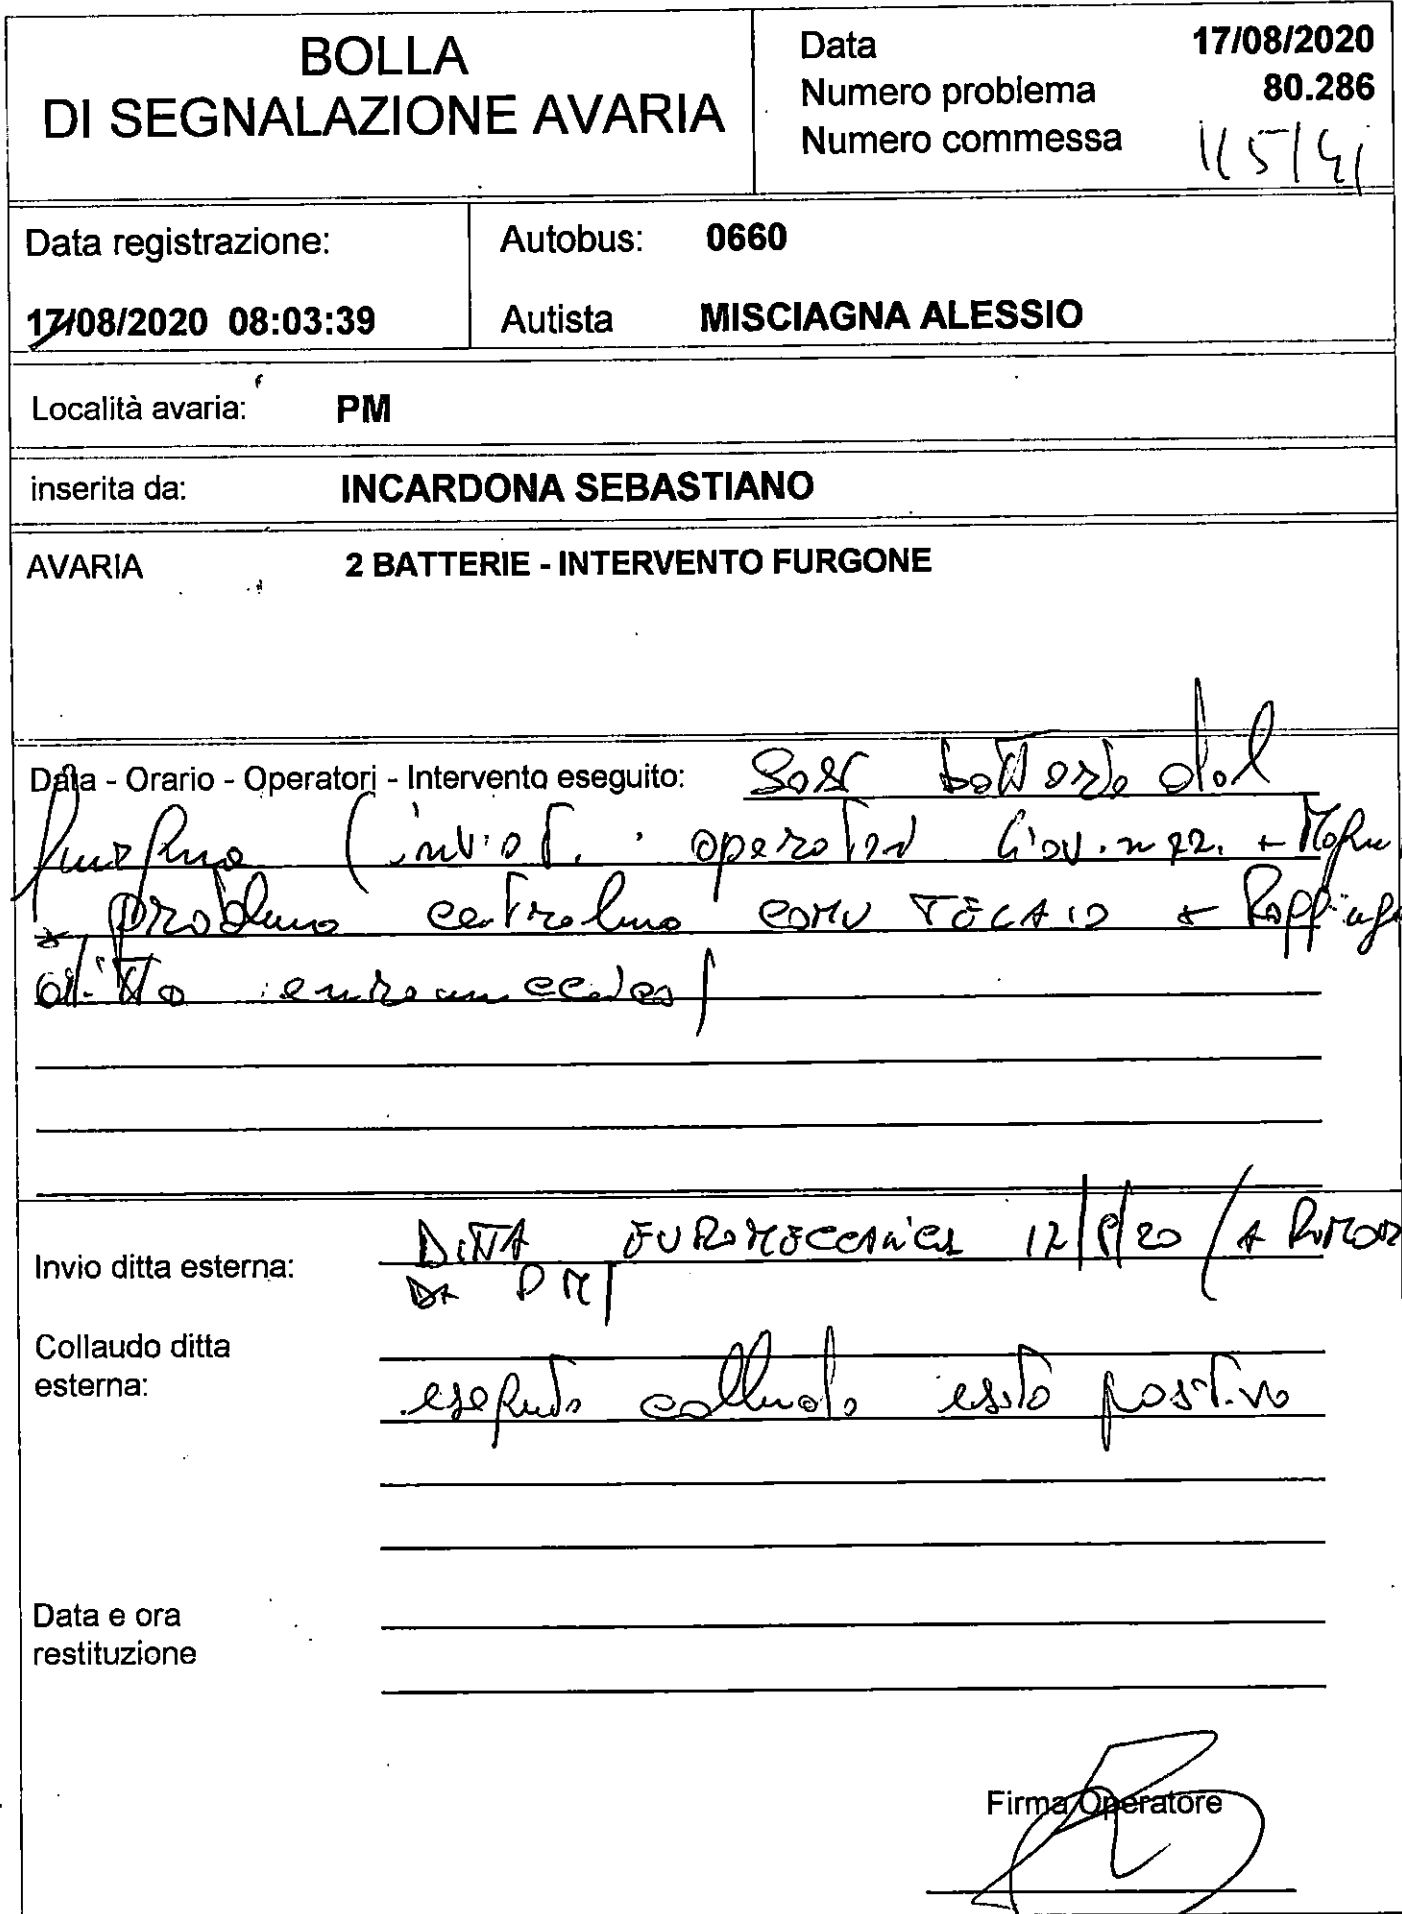 BOLLA
DI SEGNALAZIONE AVARIA
Data 17/08/2020
Numero problema 80.286
Numero commessa
Data registrazione:
17/08/2020 08:03:39
Autobus: 0660
Autista MISCIAGNA ALESSIO
Località avaria: PM
inserita da: INCARDONA SEBASTIANO
AVARIA 2 BATTERIE - INTERVENTO FURGONE
Data - Orario - Operatori - Intervento eseguito: Sost batterie dal
furgone (inviati operatori
problema centralina
ditta
Invio ditta esterna: DITTA EUROMECCANICA
DA PM
Collaudo ditta
esterna:
eseguito collaudo esito positivo
Data e ora
restituzione
Firma Operatore